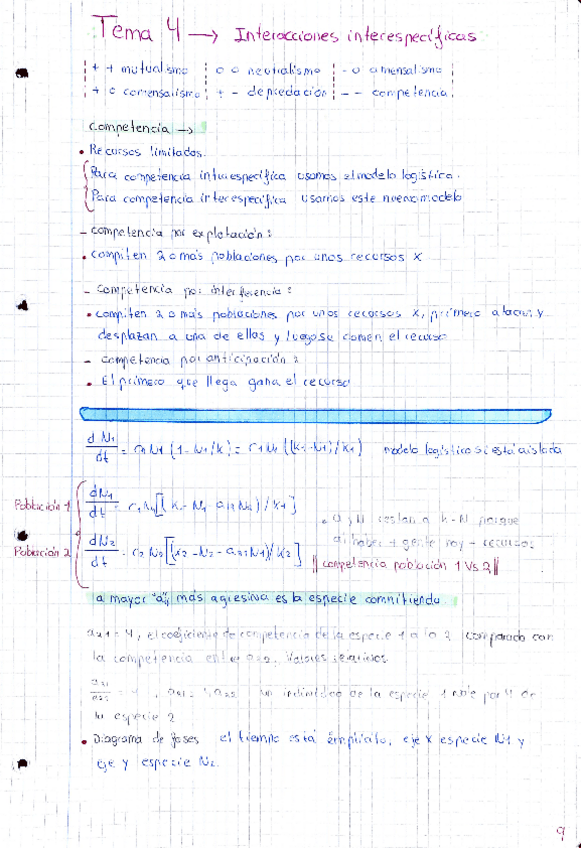 Tema 4 → Interacciones interespecíficas
+ + mutualismo | o o neutralismo | - o amensalismo
+ o comensalismo | + - depredación | - - competencia
Competencia →
• Recursos limitados.
Para competencia intraespecífica usamos el modelo logística.
Para competencia interespecífica usamos este nuevo modelo
- competencia por explotación:
• compiten 2 o más poblaciones por unos recursos x
- competencia por interferencia:
• compiten 2 o más poblaciones por unos recursos x, primero atacan y
desplazan a una de ellas y luego se comen el recurso
- competencia por anticipación:
• El primero que llega gana el recurso
dN1/dt = r1N1 (1-N1/k) = r1N1 ((k1-N1)/k1) modelo logístico si está aislada
Población 1 dN1/dt = r1N1[(k1-N1-a12N2)/k1]
• a y N restan a k-N porque
al haber + gente hay - recursos
Población 2 dN2/dt = r2N2[(k2-N2-a21N1)/k2]
|| competencia población 1 Vs 2 ||
a mayor "a", más agresiva es la especie compitiendo.
a21 = 4, el coeficiente de competencia de la especie 1 a la 2 comparado con
la competencia entre a22. Valores relativos
a21/a22 = 4, a21 = 4a22 un individuo de la especie 1 vale por 4 de
la especie 2
• Diagrama de fases el tiempo está implícito, eje x especie N1 y
eje y especie N2.
9